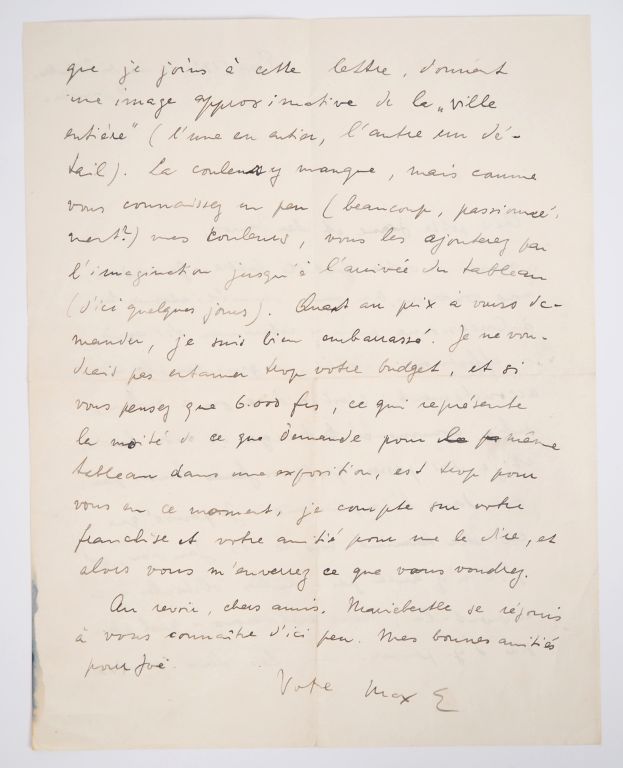 que je joins à cette lettre, donnent
une image approximative de la „ville
entière" (l'une en entier, l'autre un dé-
tail). La couleur y manque, mais comme
vous connaissez un peu (beaucoup, passionné-
ment?) mes couleurs, vous les ajouterez par
l'imagination jusqu'à l'arrivée du tableau
(d'ici quelques jours). Quant au prix à vous de-
mander, je suis bien embarrassé. Je ne vou-
drais pas entamer trop votre budget, et si
vous pensez que 6.000 frs, ce qui représente
la moité de ce que demande pour même
tableau dans une exposition, est trop pour
vous en ce moment, je compte sur votre
franchise et votre amitié pour me le dire, et
alors vous m'enverrez ce que vous voudrez.
Au revoir, chers amis. Marieberthe se réjouis
à vous connaître d'ici peu. Mes bonnes amitiés
pour Joë.
Vote Max E